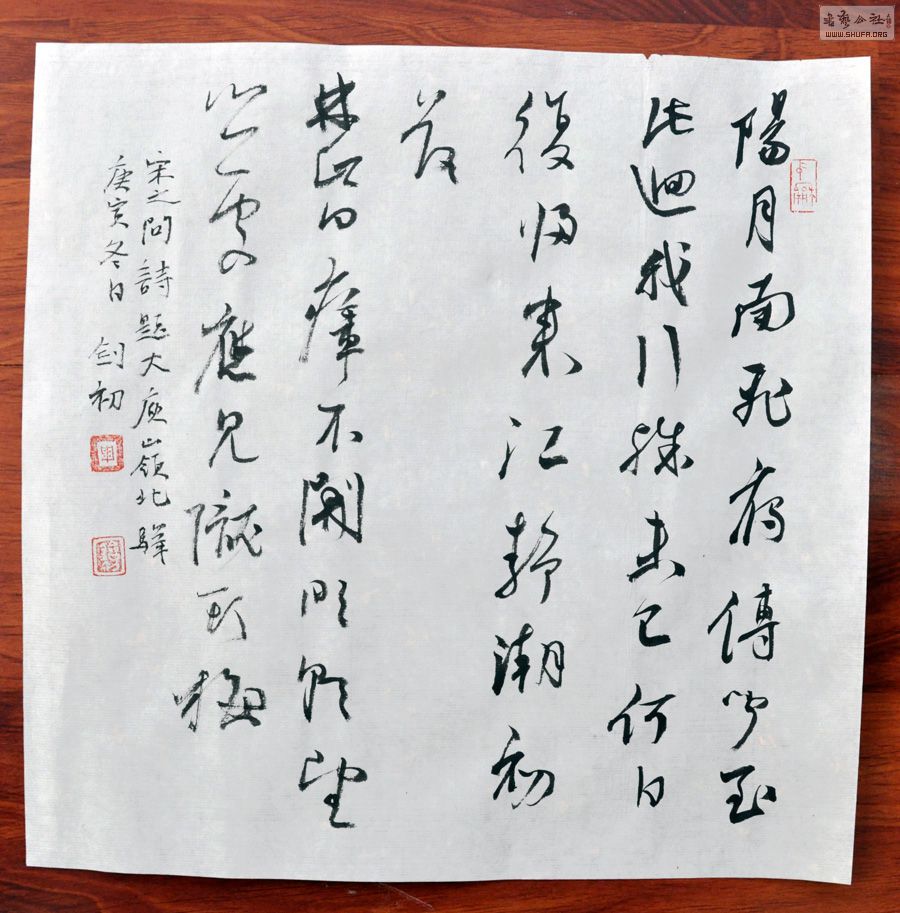 陽月南飛鴈傳聞至
此迴我行殊未已何日
復归來江靜潮初
落
林昏瘴不開明朝望
鄉處應見隴頭梅
宋之問詩題大庾嶺北驛
庚寅冬日 剑初
書藝公社
WWW.SHUFA.ORG